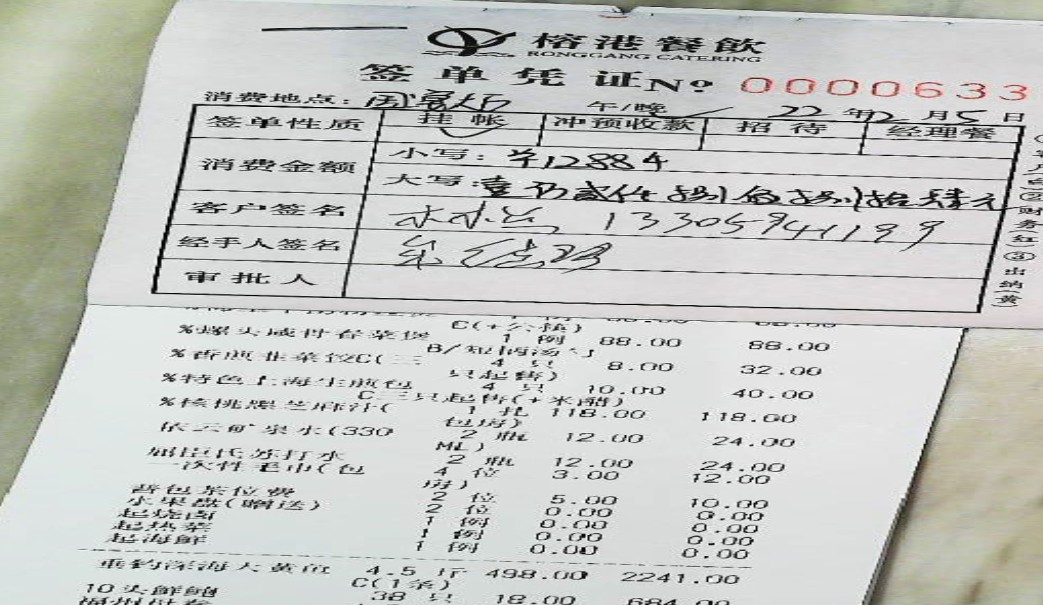 榕港餐飲
RONGGANG CATERING
签单凭证 № 0000633
消费地点: 午/晚 22年2月5日
签单性质 挂帐 冲预收款 招待 经理餐
消费金额 小写: 12884
大写: 壹万贰仟捌佰捌拾肆元
客户签名 13305941199
经手人签名
审批人
C(+公植)
%螺头咸件春菜煲 1 例 88.00 88.00
B/短脚汤勺
%香煎韭菜饺C(三 4 只 8.00 32.00
只起售)
%特色上海生煎包 4 只 10.00 40.00
C三只起售(+米醋)
%核桃黑芝麻汁( 1 扎 118.00 118.00
包房)
依云矿泉水(330 2 瓶 12.00 24.00
ML)
屈臣氏苏打水 2 瓶 12.00 24.00
一次性毛巾(包 4 位 3.00 12.00
房)
普包茶位费 2 位 5.00 10.00
水果盘(赠送) 2 位 0.00 0.00
起烧卤 1 例 0.00 0.00
起热菜 1 例 0.00 0.00
起海鲜 1 例 0.00 0.00
垂钓深海大黄鱼 4.5 斤 498.00 2241.00
C(1条)
10头鲜鲍 38 只 18.00 684.00